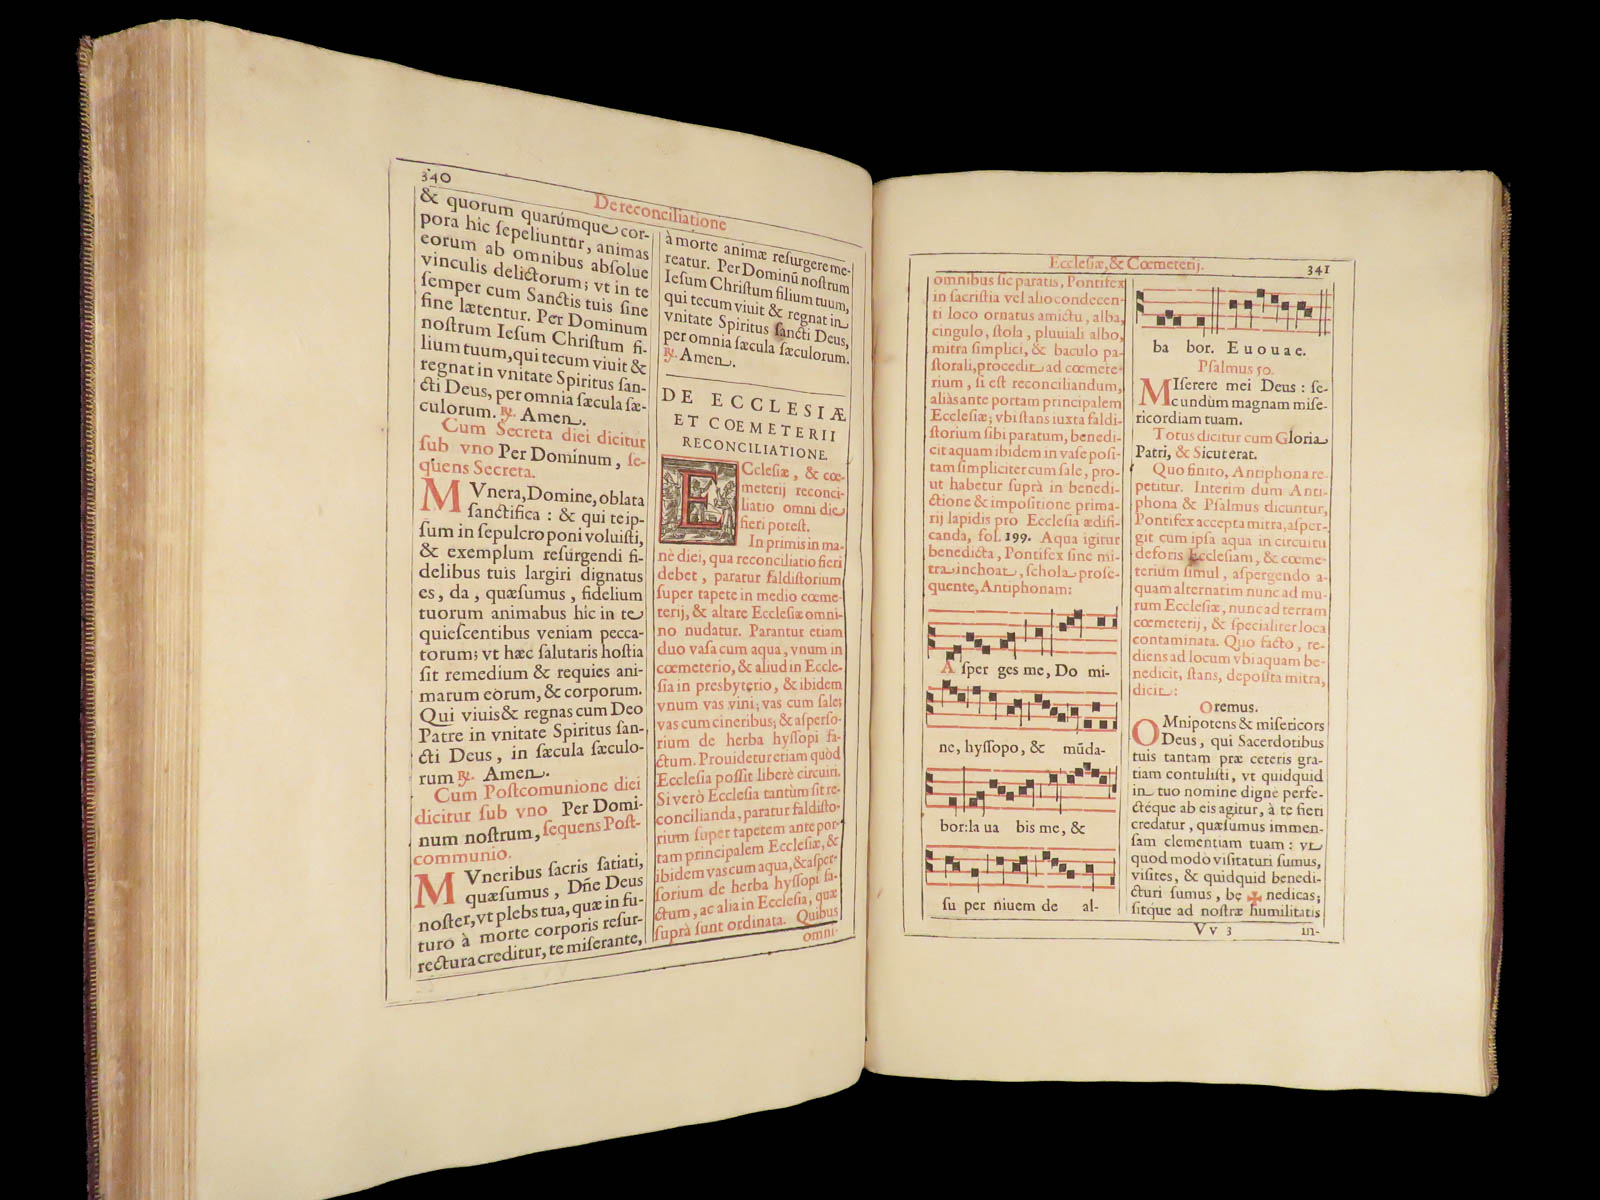 340
De reconciliatione
& quorum quarúmque cor-
pora hîc ſepeliuntur, animas
eorum ab omnibus abſolue
vinculis delictorum; vt in te
ſemper cum Sanctis tuis ſine
fine lætentur. Per Dominum
noſtrum Ieſum Chriſtum fi-
lium tuum, qui tecum viuit &
regnat in vnitate Spiritus ſan-
cti Deus, per omnia ſæcula ſæ-
culorum. ℟. Amen.
Cum Secreta diei dicitur
ſub vno Per Dominum, ſe-
quens Secreta.
MVnera, Domine, oblata
ſanctifica: & qui teip-
ſum in ſepulcro poni voluiſti,
& exemplum reſurgendi fi-
delibus tuis largiri dignatus
es, da, quæſumus, fidelium
tuorum animabus hic in te
quieſcentibus veniam pecca-
torum; vt hæc ſalutaris hoſtia
ſit remedium & requies ani-
marum eorum, & corporum.
Qui viuis & regnas cum Deo
Patre in vnitate Spiritus ſan-
cti Deus, in ſæcula ſæculo-
rum ℟. Amen.
Cum Poſtcomunione diei
dicitur ſub vno Per Domi-
num noſtrum, ſequens Poſt-
communio.
MVneribus ſacris ſatiati,
quæſumus, Dñe Deus
noſter, vt plebs tua, quæ in fu-
turo à morte corporis reſur-
rectura creditur, te miſerante,
à morte animæ reſurgere me-
reatur. Per Dominũ noſtrum
Ieſum Chriſtum filium tuum,
qui tecum viuit & regnat in
vnitate Spiritus ſancti Deus,
per omnia ſæcula ſæculorum.
℟. Amen.
DE ECCLESIÆ
ET COEMETERII
RECONCILIATIONE.
ECcleſiæ, & cœ-
meterij reconci-
liatio omni die
fieri poteſt.
In primis in ma-
nè diei, qua reconciliatio fieri
debet, paratur faldiſtorium
ſuper tapete in medio cœme-
terij, & altare Eccleſiæ omni-
no nudatur. Parantur etiam
duo vaſa cum aqua, vnum in
cœmeterio, & aliud in Eccle-
ſia in presbyterio, & ibidem
vnum vas vini; vas cum ſale;
vas cum cineribus; & aſperſo-
rium de herba hyſſopi fa-
ctum. Prouidetur etiam quòd
Eccleſia poſſit liberè circuiri.
Si verò Eccleſia tantùm ſit re-
concilianda, paratur faldiſto-
rium ſuper tapetem ante por-
tam principalem Eccleſiæ, &
ibidem vas cum aqua, & aſper-
ſorium de herba hyſſopi fa-
ctum, ac alia in Eccleſia, quæ
ſuprà ſunt ordinata. Quibus
omni-
Eccleſiæ, & Cœmeterij.
341
omnibus ſic paratis, Pontifex
in ſacriſtia vel alio condecen-
ti loco ornatus amictu, alba,
cingulo, ſtola, pluuiali albo,
mitra ſimplici, & baculo pa-
ſtorali, procedit ad cœmete-
rium, ſi eſt reconciliandum,
aliàs ante portam principalem
Eccleſiæ; vbi ſtans iuxta faldi-
ſtorium ſibi paratum, benedi-
cit aquam ibidem in vaſe poſi-
tam ſimpliciter cum ſale, pro-
ut habetur ſuprà in benedi-
ctione & impoſitione prima-
rij lapidis pro Eccleſia ædifi-
canda, fol. 199. Aqua igitur
benedicta, Pontifex ſine mi-
tra inchoat, ſchola proſe-
quente, Antiphonam:
A ſper ges me, Do mi-
ne, hyſſopo, & mũda-
bor: la ua bis me, &
ſu per niuem de al-
ba bor. E u o u a e.
Pſalmus 50.
MIſerere mei Deus: ſe-
cundùm magnam miſe-
ricordiam tuam.
Totus dicitur cum Gloria
Patri, & Sicut erat.
Quo finito, Antiphona re-
petitur. Interim dum Anti-
phona & Pſalmus dicuntur,
Pontifex accepta mitra, aſper-
git cum ipſa aqua in circuitu
deforis Eccleſiam, & cœme-
terium ſimul, aſpergendo a-
quam alternatim nunc ad mu-
rum Eccleſiæ, nunc ad terram
cœmeterij, & ſpecialiter loca
contaminata. Quo facto, re-
diens ad locum vbi aquam be-
nedicit, ſtans, depoſita mitra,
dicit:
Oremus.
OMnipotens & miſericors
Deus, qui Sacerdotibus
tuis tantam præ ceteris gra-
tiam contuliſti, vt quidquid
in tuo nomine dignè perfe-
ctéque ab eis agitur, à te fieri
credatur, quæſumus immen-
ſam clementiam tuam: vt
quod modò viſitaturi ſumus,
viſites, & quidquid benedi-
cturi ſumus, be ✠ nedicas;
ſitque ad noſtræ humilitatis
V v 3
in-